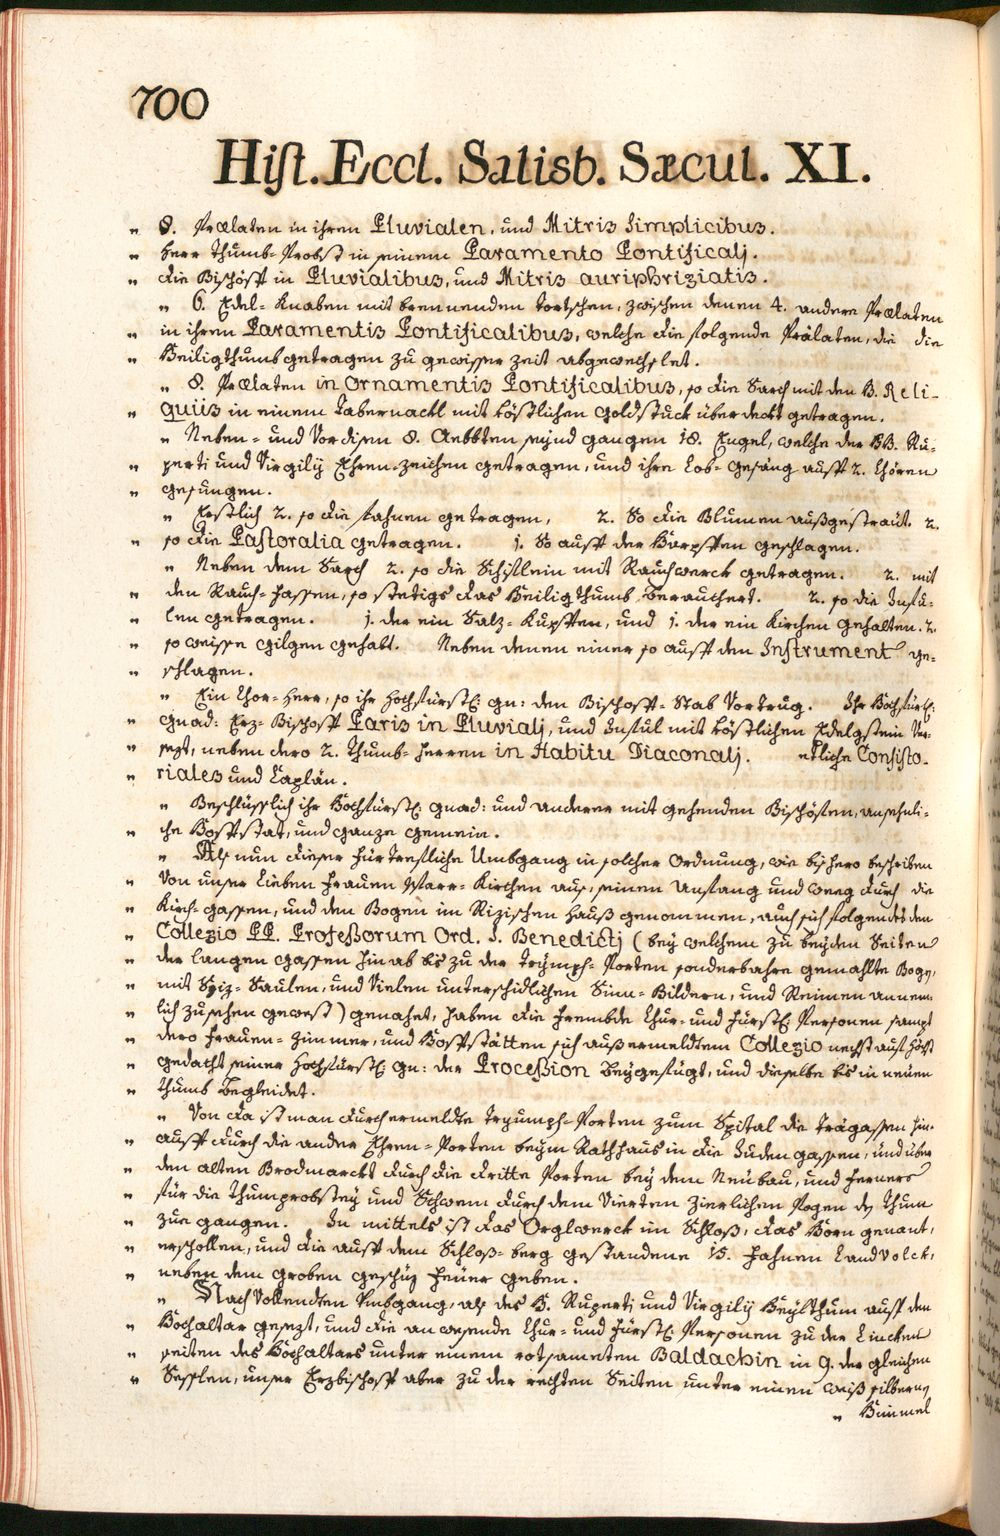 700
Hist. Eccl. Salisb. Sæcul. XI.
„ 8. Prælaten in ihren Pluvialen, und Mitris Simplicibus.
„ Herr Thumb-Probst in seinem Paramento Pontificalj.
„ die Bischöff in Pluvialibus, und Mitris auriphriziatis.
„ 6. Edel-Knaben mit brennenden Tortschen, zwischen denen 4. andere Prælaten
„ in ihren Paramentis Pontificalibus, welche die folgende Prälaten, die die
„ Heiligthumb getragen zu gewisser zeit abgewechslet.
„ 8. Prælaten in Ornamentis Pontificalibus, so die Sarch mit den H. Reli-
„ quiis in einem Tabernackl mit köstlichen Goldstuck überdeckt getragen.
„ Neben- und Vor disen 8. Aebbten seynd gangen 18. Engel, welche der HH. Ru-
„ perti und Virgilij Ehren-zeichen getragen, und ihre Lob-gesäng auff 2. Chören
„ gesungen.
„ Erstlich 2. so die fahnen getragen, 2. So die Blumen außgestraut. 2.
„ so die Pastoralia getragen. 1. So auff der Harpffen geschlagen.
„ Neben dem Sarch 2. so die Schiflein mit Rauchwerck getragen. 2. mit
„ den Rauch-fassen, so stetigs das Heiligthumb berauchert. 2. so die Insu-
„ len getragen. 1. der ein Salz-Kupffen, und 1. der ein Kirchen gehalten. 2.
„ so weisse gilgen gehabt. Neben denen einer so auff den Instrument ge-
„ schlagen.
„ Ein Chor-Herr, so ihr Hochfürstl: gn: den Bischoff-Stab Vortrug. Ihr Hochfürstl:
„ gnad: Erz-Bischoff Paris in Pluvialj, und Inful mit köstlichen Edelgstein Ver-
„ sezt, neben dero 2. Thumb-Herren in Habitu Diaconalj. etliche Consisto-
„ riales und Caplän.
„ Beschlüsslich ihr Hochfürstl: gnad: und anderer mit gehenden Bischöfen, ansehnli-
„ che Hoffstat, und ganze gemein.
„ Alß nun dieser fürtrefliche Umbgang in solcher Ordnung, wie bishero beschriben
„ Von unser Lieben Frauen Pfarr-Kirchen auß, seinen anfang und weeg durch die
„ Kirch-gassen, und den Bogen im Rizischen Hauß genommen, auch sich folgendts den
„ Collegio PP. Professorum Ord. S. Benedictj (bey welchem zu beyden Seiten
„ der langen gassen hinab bis zu der Trÿmph-Porten sonderbahre gemahlte Bogn,
„ mit Spiz-Saulen, und Vielen unterschidlichen Sinn-Bildern, und Reimen annem-
„ lich zusehen gewest) genahet, haben die frembde Chur- und Fürstl: Personen sampt
„ dero Frauen-zimmer, und Hoffstätten sich auß ermeldtem Collegio nechst auf höchst
„ gedacht seiner Hochfürstl: gn: der Procession beygefügt, und dieselbe bis in neuen
„ thumb begleidet.
„ Von da ist man durch ermeldte Tryumph-Porten zum Spital die Trägassen hin-
„ auff durch die ander Ehren-Porten beym Rathhaus in die Judengassen, und über
„ den alten Brodmarckt durch die dritte Porten bey dem Neubau, und ferners
„ für die Thumprobstey und Schwem durch den Vierten zierlichen Pogen den Thum
„ zue gangen. In mittels ist das Orglwerck im Schloß, das Horn genant,
„ erschollen, und die auff dem Schloß-berg gestandene 15. Fahnen Landvolck,
„ neben dem groben geschüz feuer geben.
„ Nach Vollendten Umbgang, alß des H. Ruperti und Virgilij Heylthum auff den
„ Hochaltar gesezt, und die anwesende Chur- und Fürstl: Personen zu der Lincken
„ seiten des Hochaltars unter einem rotsameten Baldachin in 9. der gleichen
„ Sesslen, unser Erzbischoff aber zu der rechten Seiten unter einen weiß silbern
„ Himmel